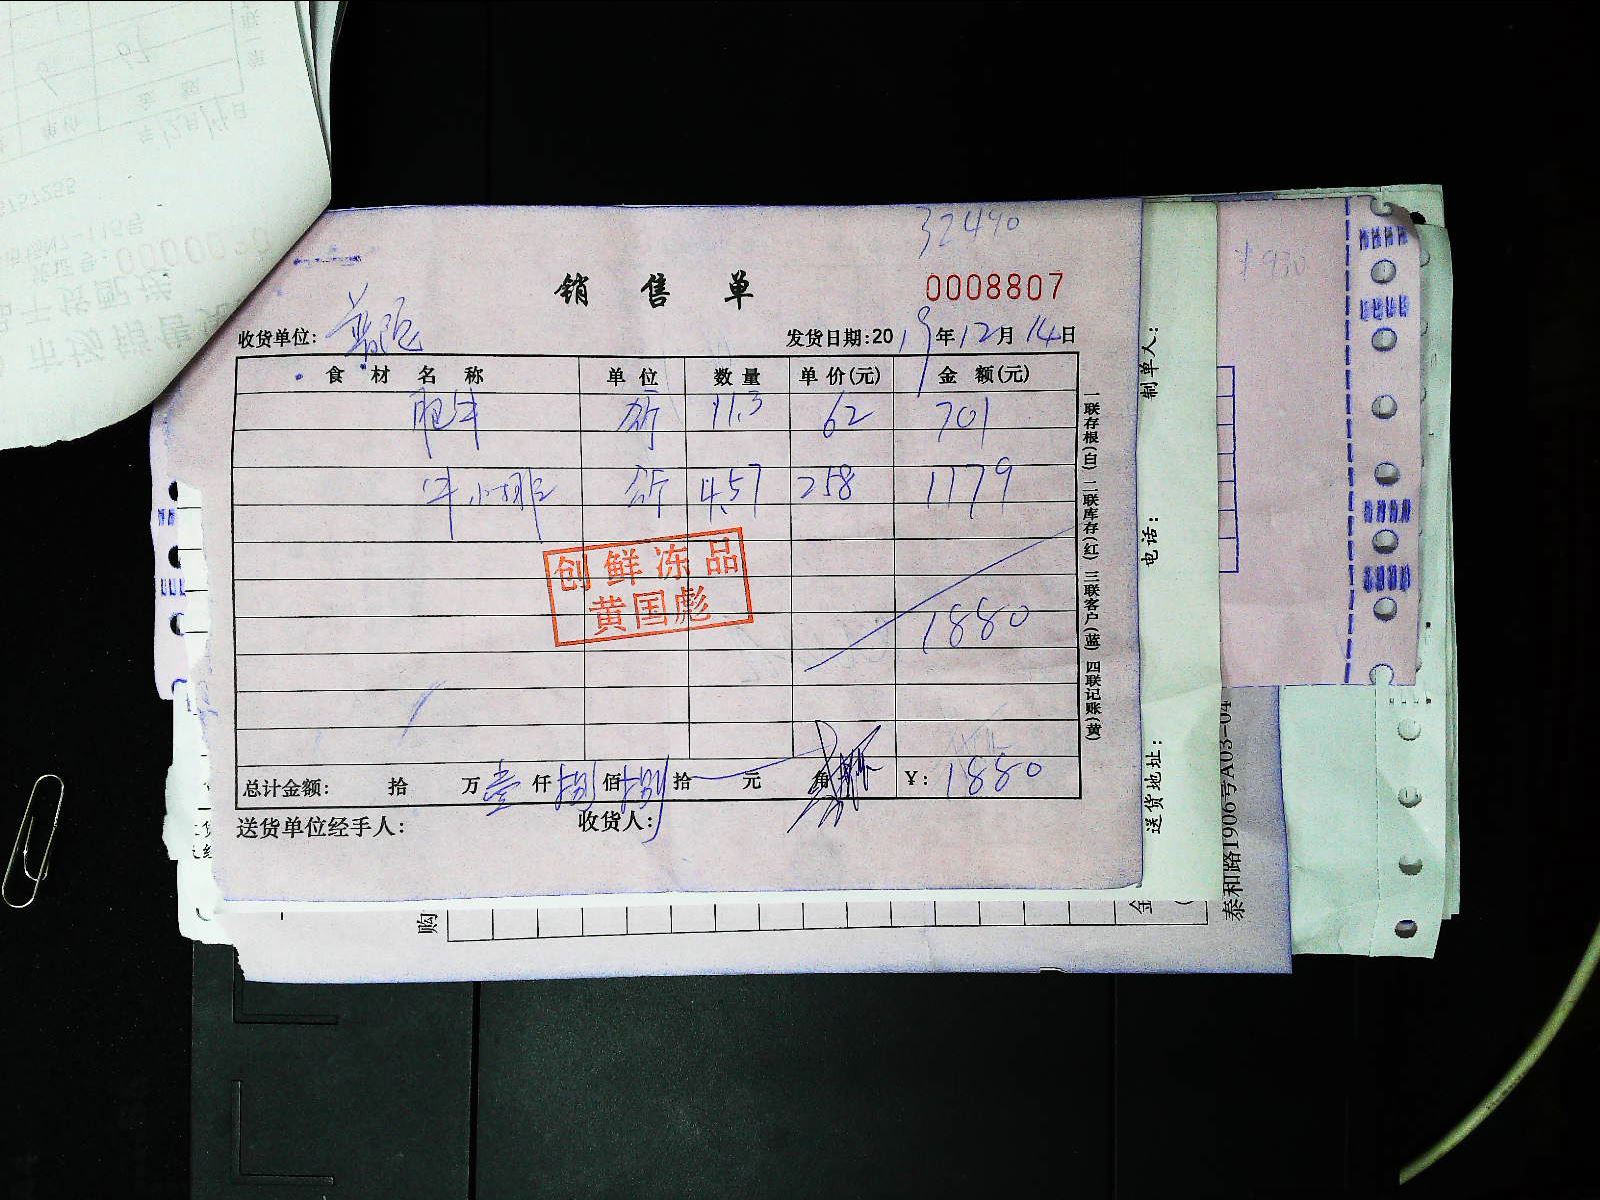 32490
销售单
0008807
收货单位: 普陀
发货日期:2019年12月14日
食材名称 单位 数量 单价(元) 金额(元)
肥牛 斤 11.3 62 701
牛小排 斤 4.57 258 1179
创鲜冻品
黄国彪
1880
总计金额: 拾 万壹仟捌佰捌拾 元 角 ¥: 1880
送货单位经手人: 收货人:
一联存根(白) 二联库存(红) 三联客户(蓝) 四联记账(黄)
制单人:
电话:
送货地址:
泰和路1906号A03-04
¥930
购
金